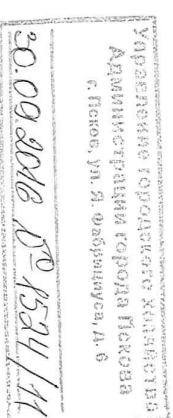 Управление городского хозяйства
Администрации города Пскова
г. Псков, ул. Я. Фабрициуса, д. 6
30.09.2016 № 1524/11